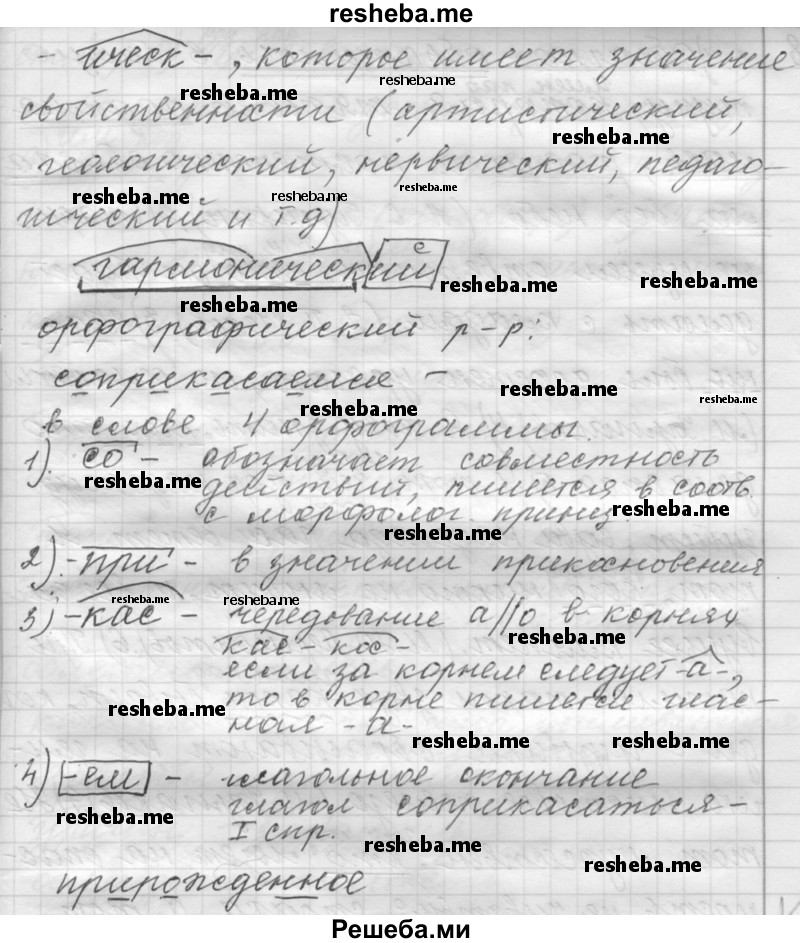 resheba.me
-ическ-, которое имеет значение
resheba.me resheba.me
свойственности (артистический,
resheba.me
геологический, нервический, педаго-
resheba.me resheba.me resheba.me
гический и т.д)
е
гармонический
resheba.me resheba.me
resheba.me
орфографический р-р:
соприкасаемся -
resheba.me resheba.me
resheba.me
в слове 4 орфограммы.
1). со - обозначает совместность
resheba.me
действий, пишется в соотв.
resheba.me
с морфолог. принц.
resheba.me
2). -при - в значении прикосновения
resheba.me resheba.me
3) -кас - чередование а//о в корнях
resheba.me
кас - кос -
если за корнем следует -а-,
то в корне пишется глас-
resheba.me
ная -а-
resheba.me resheba.me
4) -ем - глагольное окончание
глагол соприкасаться -
resheba.me
I спр.
resheba.me
resheba.me
прирожденное
Решеба.ми